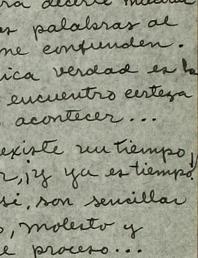 ra decirte
as palabras al
me confunden.
ica verdad es la
encuentro certeza
acontecer...
existe un tiempo
r, ¡y ya es tiempo!
si, son sencillas
o, molesto y
e proceso...